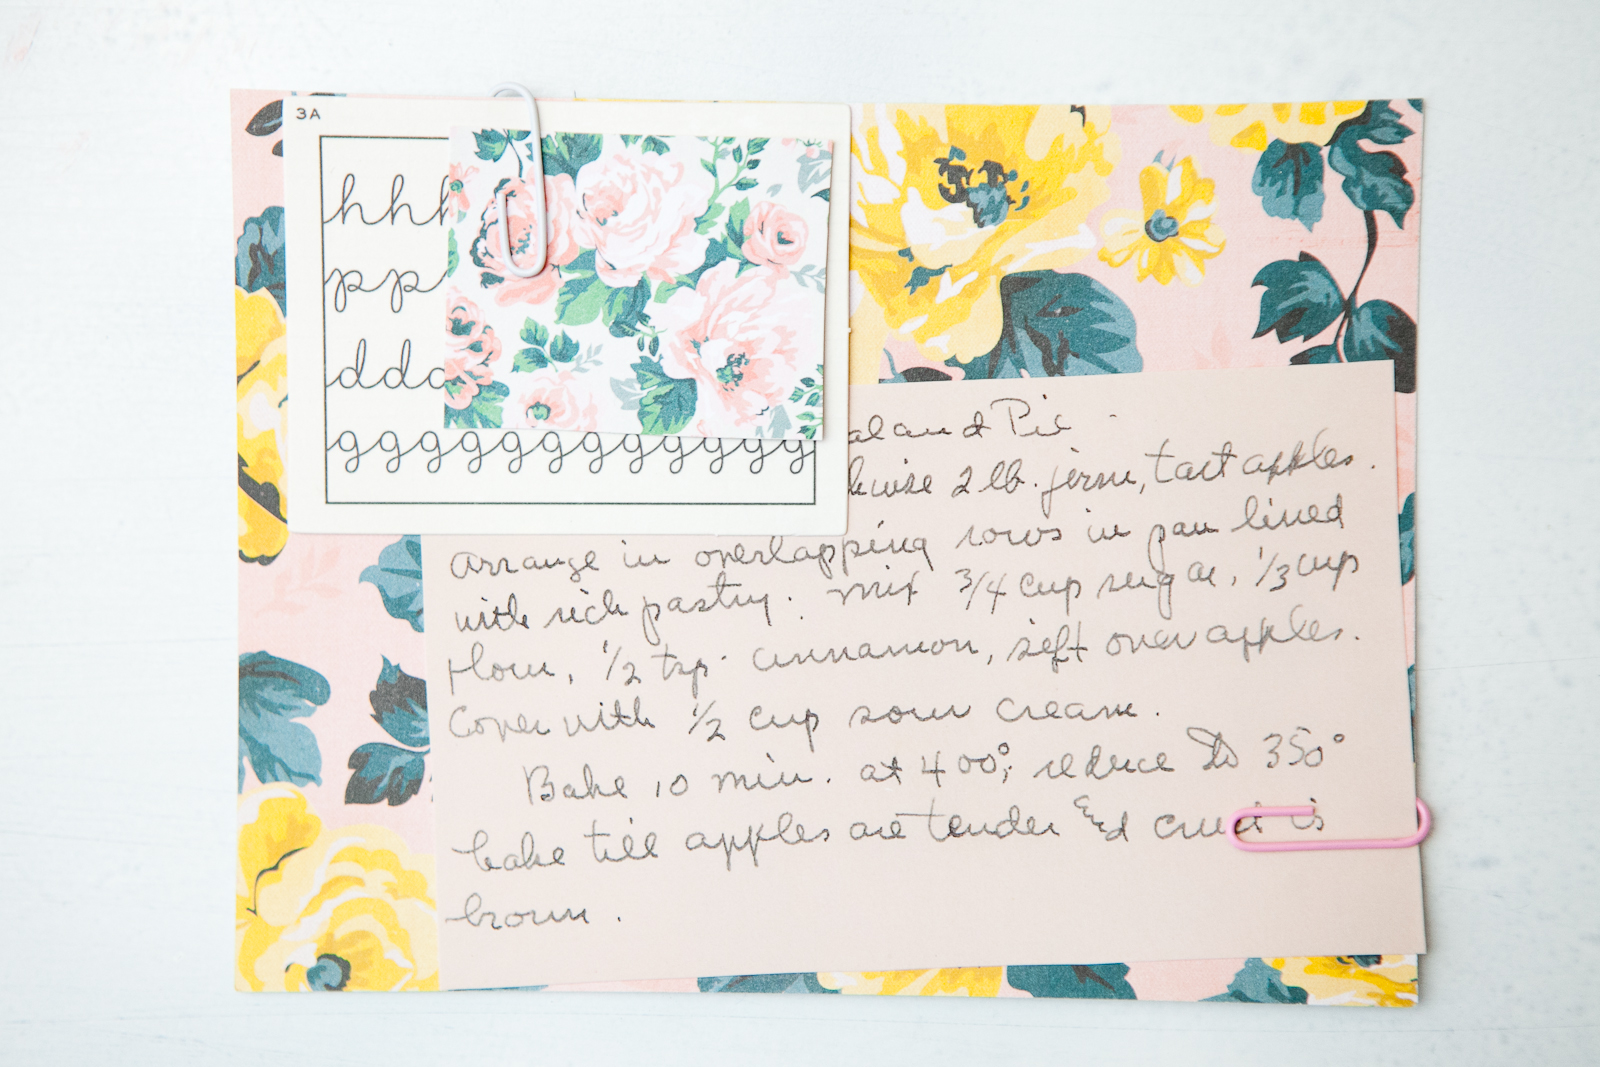 3A
hhh
pp
dd
ggggggggggg
Pie
2 lb. firm, tart apples.
arrange in overlapping rows in pan lined
with rich pastry. Mix 3/4 cup sugar, 1/3 cup
flour, 1/2 tsp. cinnamon, sift over apples.
Cover with 1/2 cup sour cream.
Bake 10 min. at 400°; reduce to 350°
bake till apples are tender and crust is
brown.